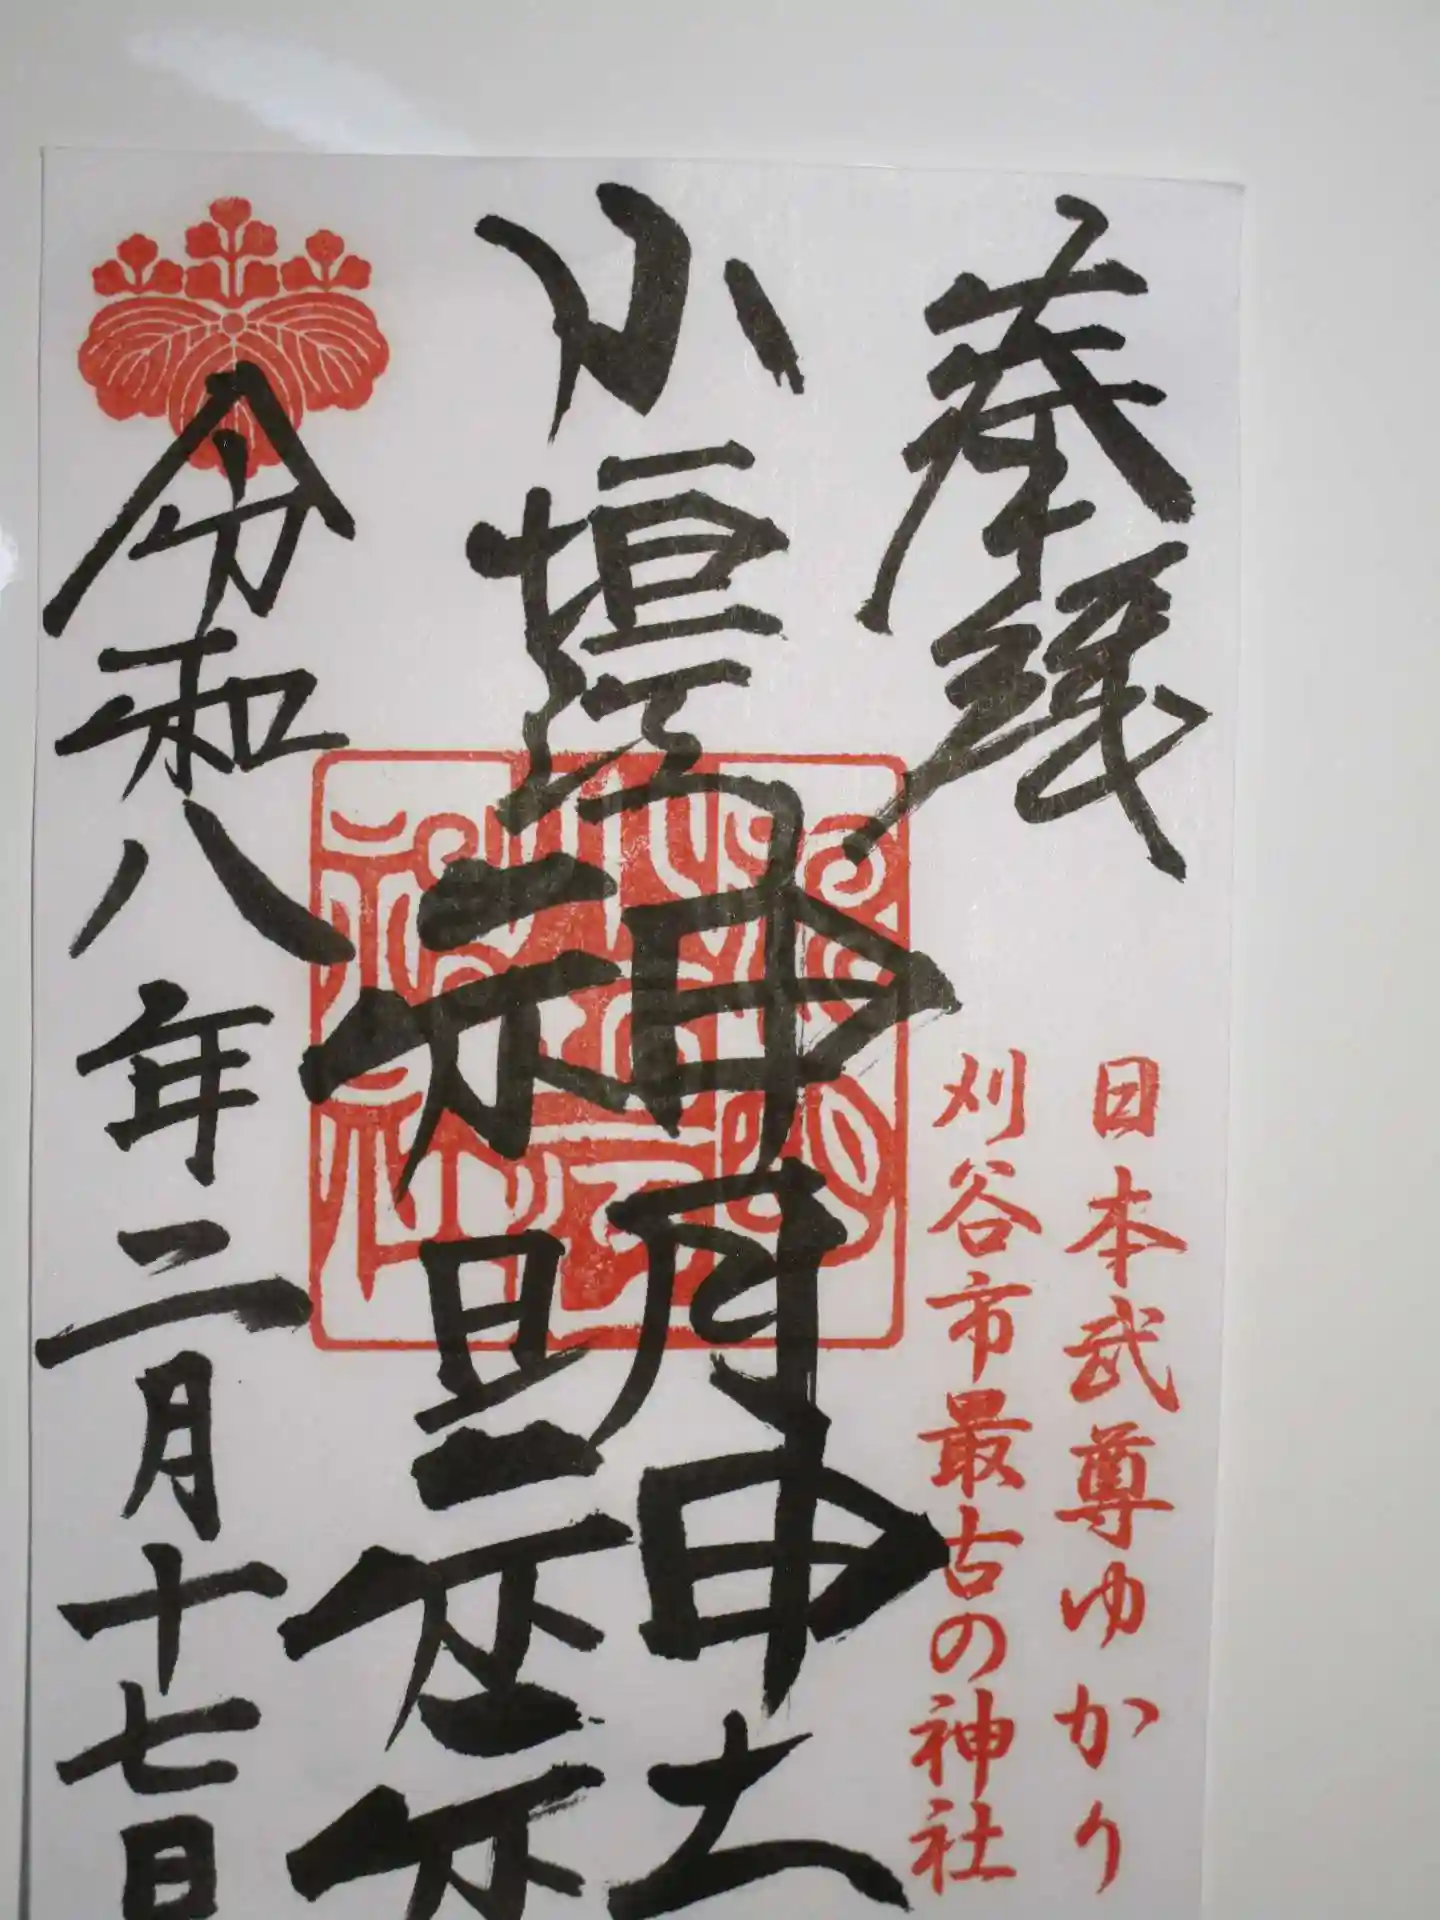 奉拝
日本武尊ゆかり
刈谷市最古の神社
小垣江神明神社
令和八年二月十七日